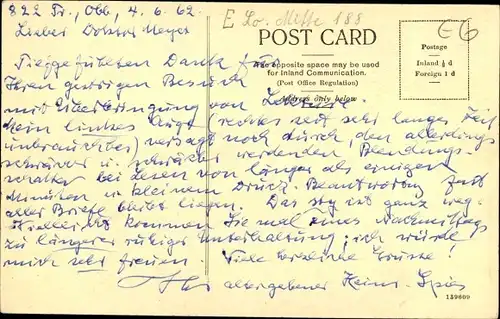 822 Tr., Obb, 4. 6. 62.
E Lo. Mitte 188
E6
Lieber Doktor Meyer
POST CARD
The opposite space may be used
for Inland Communication.
(Post Office Regulation)
Address only below
Postage
Inland ½ d
Foreign 1 d
Tiefgefühlten Dank f.
Ihren gestrigen Besuch
mit Überbringung von
Mein linkes Auge (rechtes seit sehr langer Zeit
unbrauchbar) versagt noch durch, den allerdings
schwächer u. schwächer werdenden Blendungs-
bei Lesen von länger als einigen
Minuten u. kleinem Druck. Beantworten fast
aller Briefe bleibt liegen. Das ist ganz weg.
Vielleicht kommen Sie mal eines Nachmittags
zu längerer ruhiger Unterhaltung; ich würde
mich sehr freuen. Viele herzliche Grüsse!
Ihr altergebener Heinr. Spies
139609